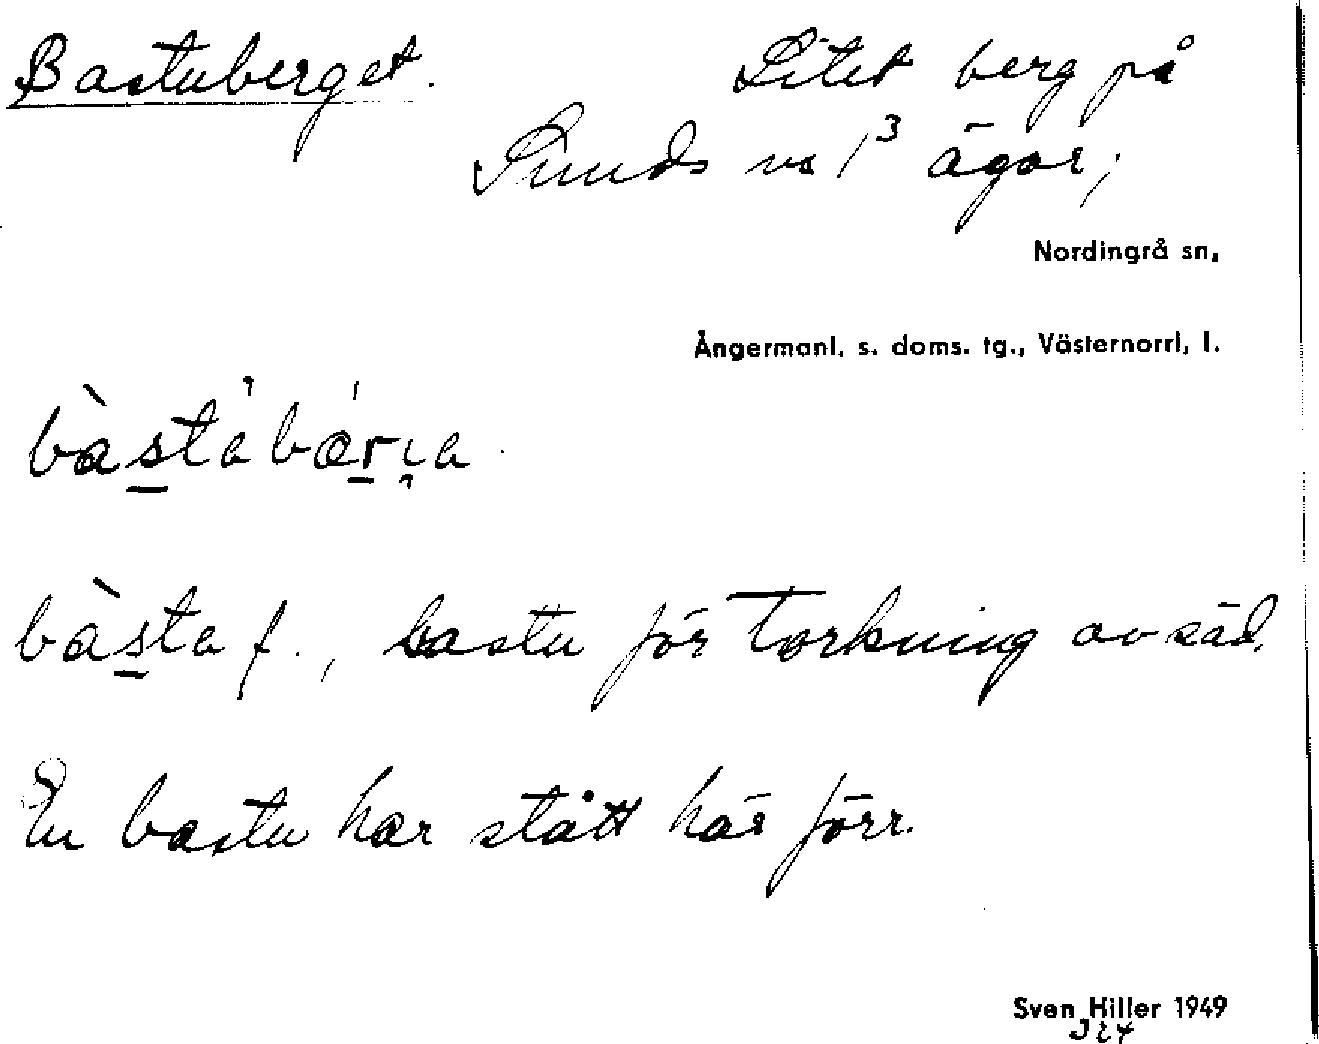 Bastuberget. Litet berg på
Sunds nr 1³ ägor;
Nordingrå sn,
Ångermanl. s. doms. tg., Västernorrl. l.
bàsta f., bastu för torkning av säd.
En bastu har stått här förr.
Sven Hiller 1949